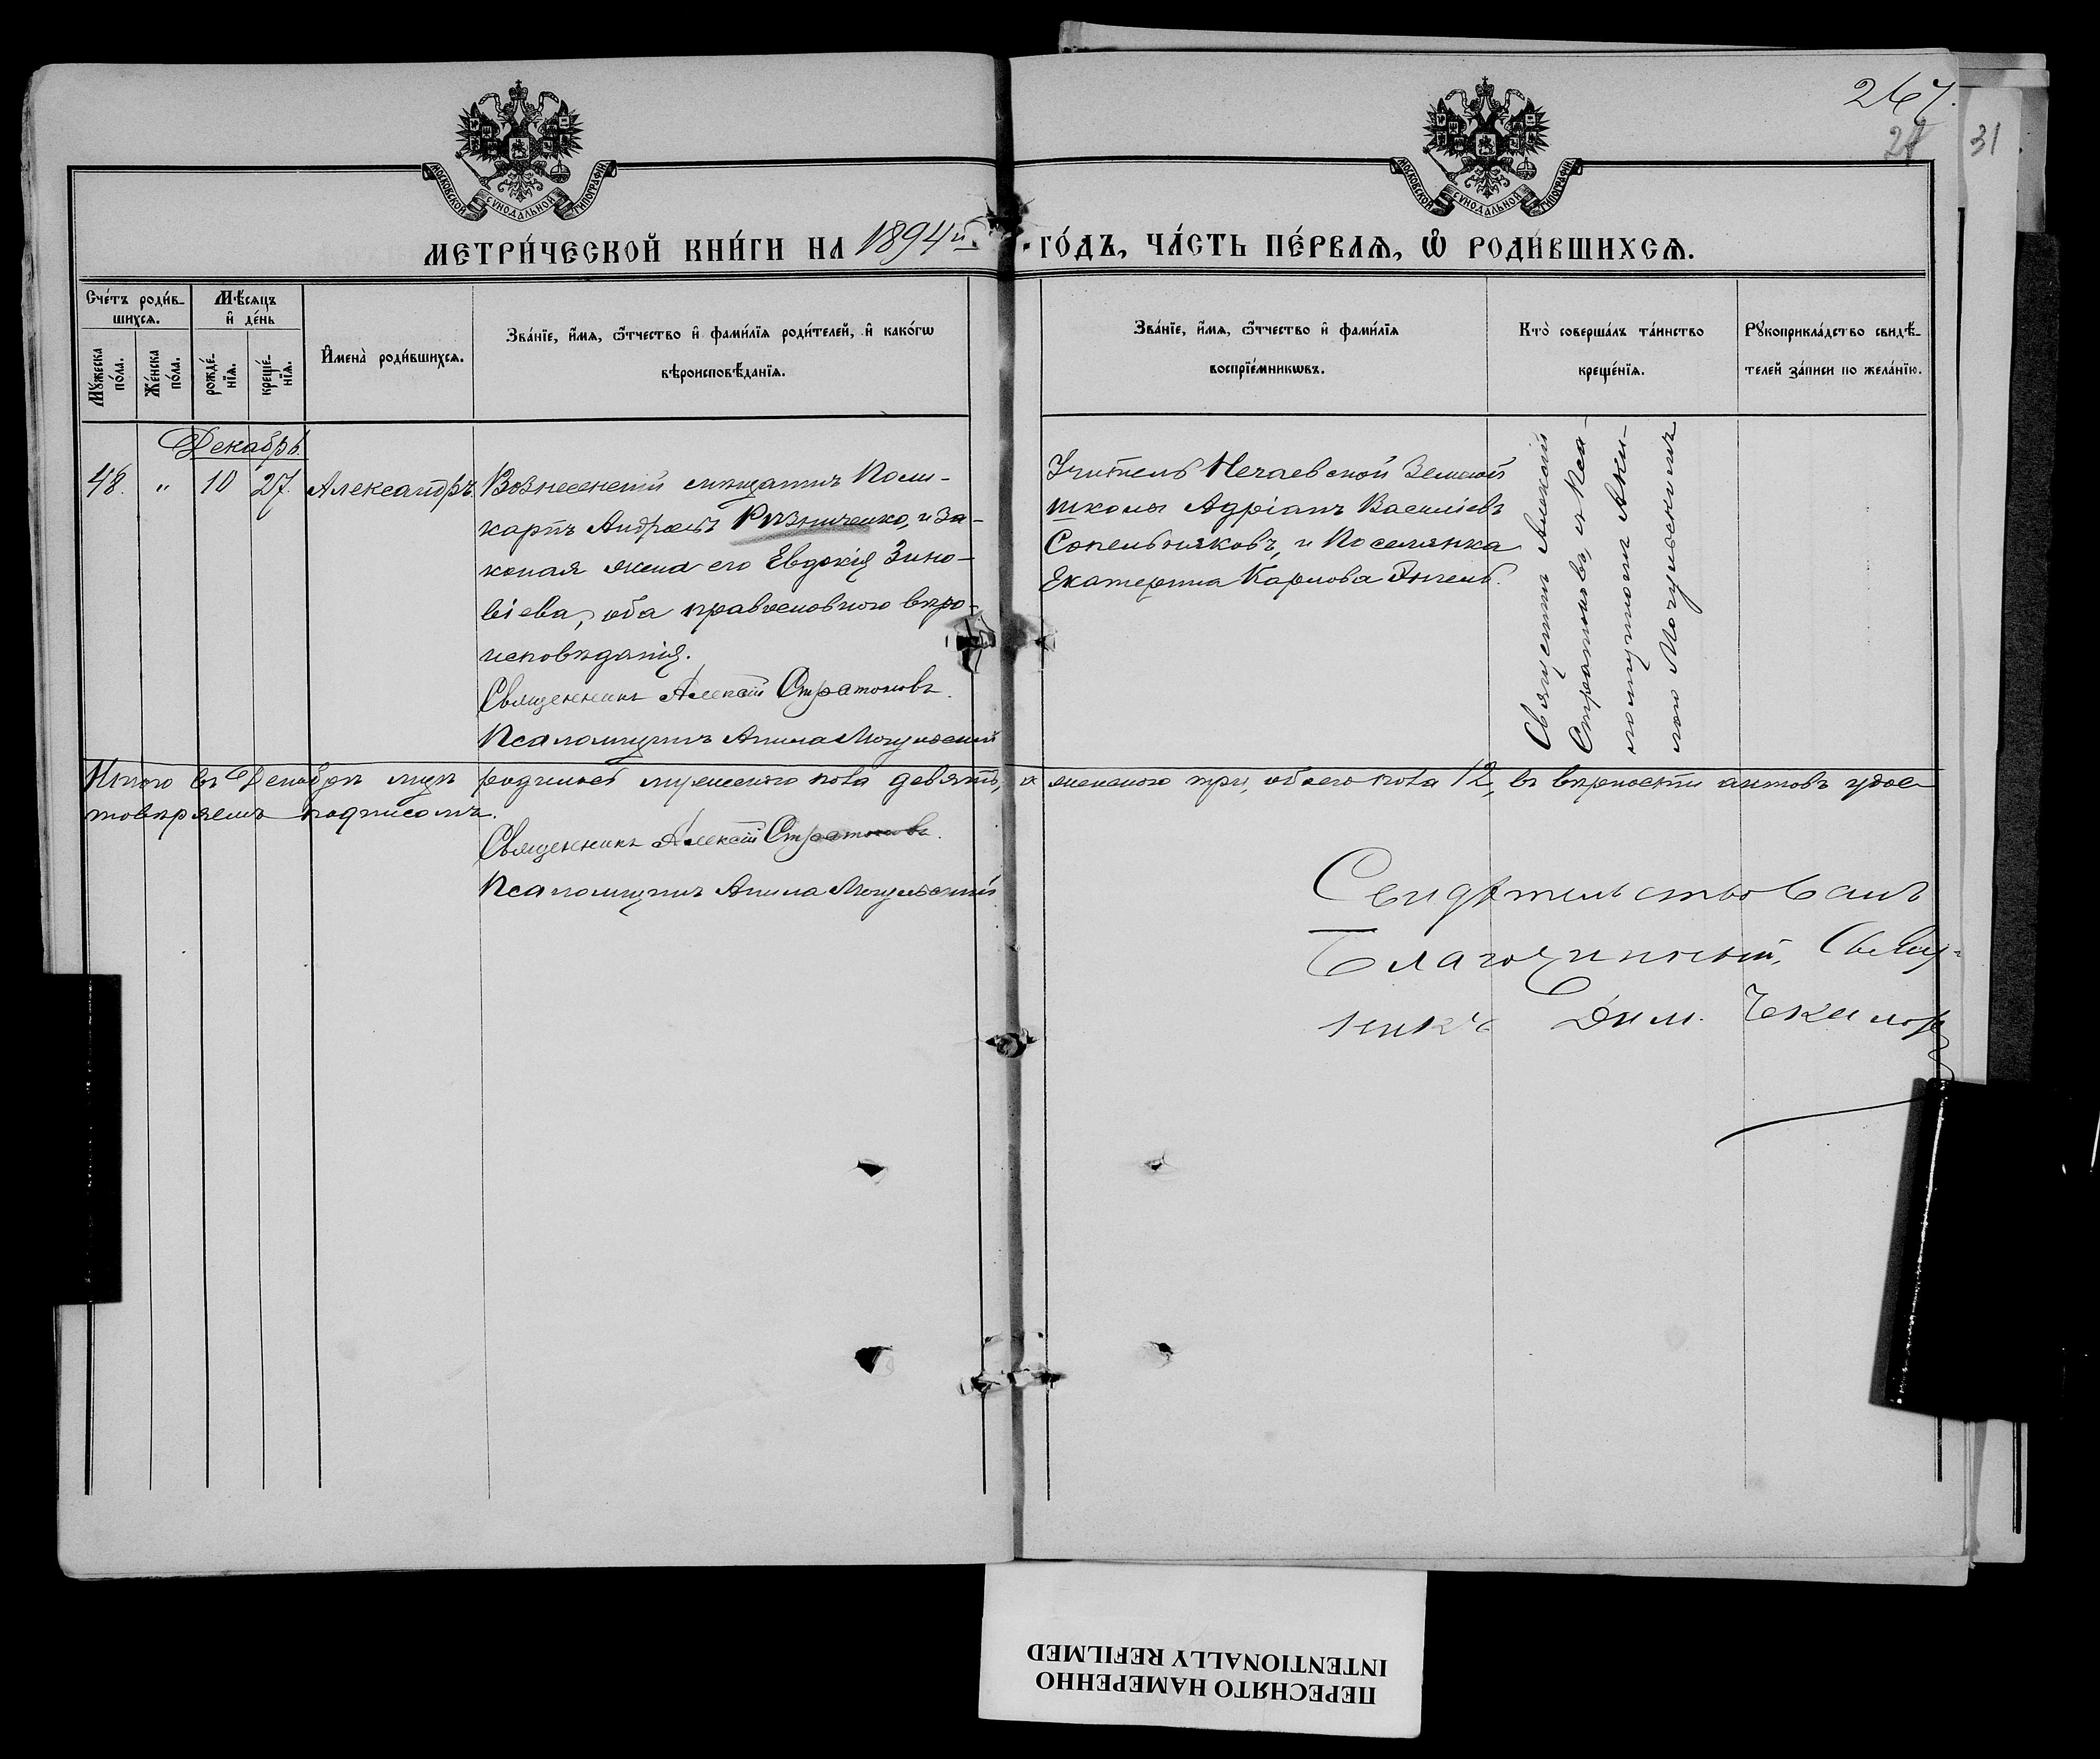 267.
28
31
МОСКОВСКОЙ СѴНОДАЛЬНОЙ ТИПОГРАФІИ
МОСКОВСКОЙ СѴНОДАЛЬНОЙ ТИПОГРАФІИ
МЕТРИ́ЧЕСКОЙ КНИ́ГИ НА 1894й. ГО́ДЪ, ЧА́СТЬ ПЕ́РВАѦ, Ѿ РОДИ́ВШИХСѦ.
Сче́тъ роди́в-
шихсѧ.
Мꙋ́жеска
по́ла.
Же́нска
по́ла.
Мѣ́сѧцъ
и҆ де́нь
рожде́-
нїѧ.
креще́-
нїѧ.
И҆мена̀ роди́вшихсѧ.
Зва́нїе, и҆́мѧ, ѻ҆́тчество и҆ фами́лїѧ роди́телей, и҆ како́гѡ
вѣроисповѣ́данїѧ.
Зва́нїе, и҆́мѧ, ѻ҆́тчество и҆ фами́лїѧ
воспрїе́мникѡвъ.
Кто̀ соверша́лъ та́инство
креще́нїѧ.
Рꙋкоприкла́дство свидѣ́-
телей за́писи по жела́нїю.
Декабрь
48. " 10 27. Александръ.
Вознесенскій мѣщанинъ Поли-
карпъ Андреевъ Рѣзниченко, и за-
конная жена его Евдокія Зино-
віева, оба православного вѣро-
исповѣданія.
Священникъ Алексій Стратоновъ.
Псаломщикъ Акила Могульскій
Учитель Нечаевской Земской
школы Адріанъ Василіевъ
Сопельняковъ, и Поселянка
Екатерина Карлова Энгель.
Священникъ Алексій
Стратоновъ, съ Пса-
ломщикомъ Аки-
лою Могульскимъ
Итого въ Декабрѣ мцѣ родилось мужеского пола девять, и женского три, обоего пола 12, въ вѣрности актовъ удос-
товѣряемъ подписомъ.
Священникъ Алексій Стратоновъ.
Псаломщикъ Акила Могульскій
Свидѣтельствовалъ
Благочинный, Свящ-
никъ Дим.
ПЕРЕСНЯТО НАМЕРЕННО
INTENTIONALLY REFILMED